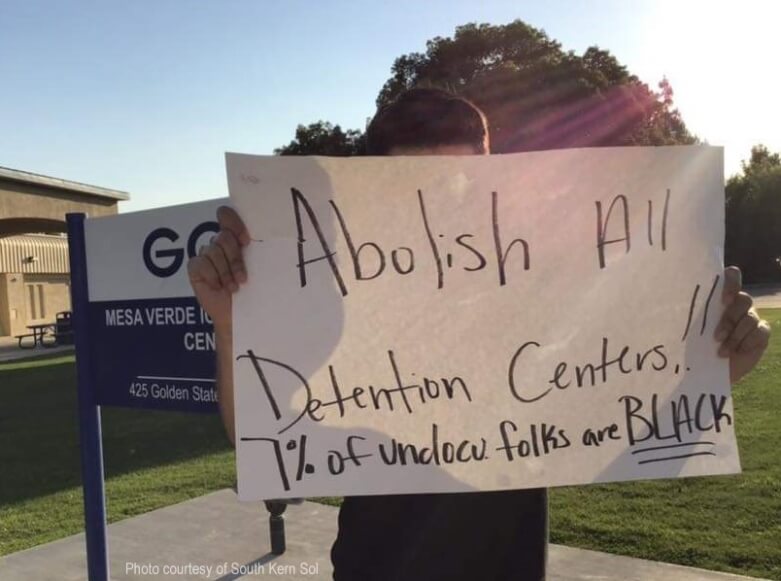 Abolish All
Detention Centers!!
7% of undocu. folks are BLACK
MESA VERDE
CEN
425 Golden State
Photo courtesy of South Kern Sol